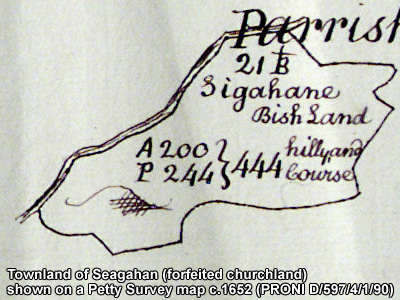 Parrish
21 B
Sigahane
Bish Land
A 200 } 444 hilly and
P 244 Course
Townland of Seagahan (forfeited churchland)
shown on a Petty Survey map c.1652 (PRONI D/597/4/1/90)